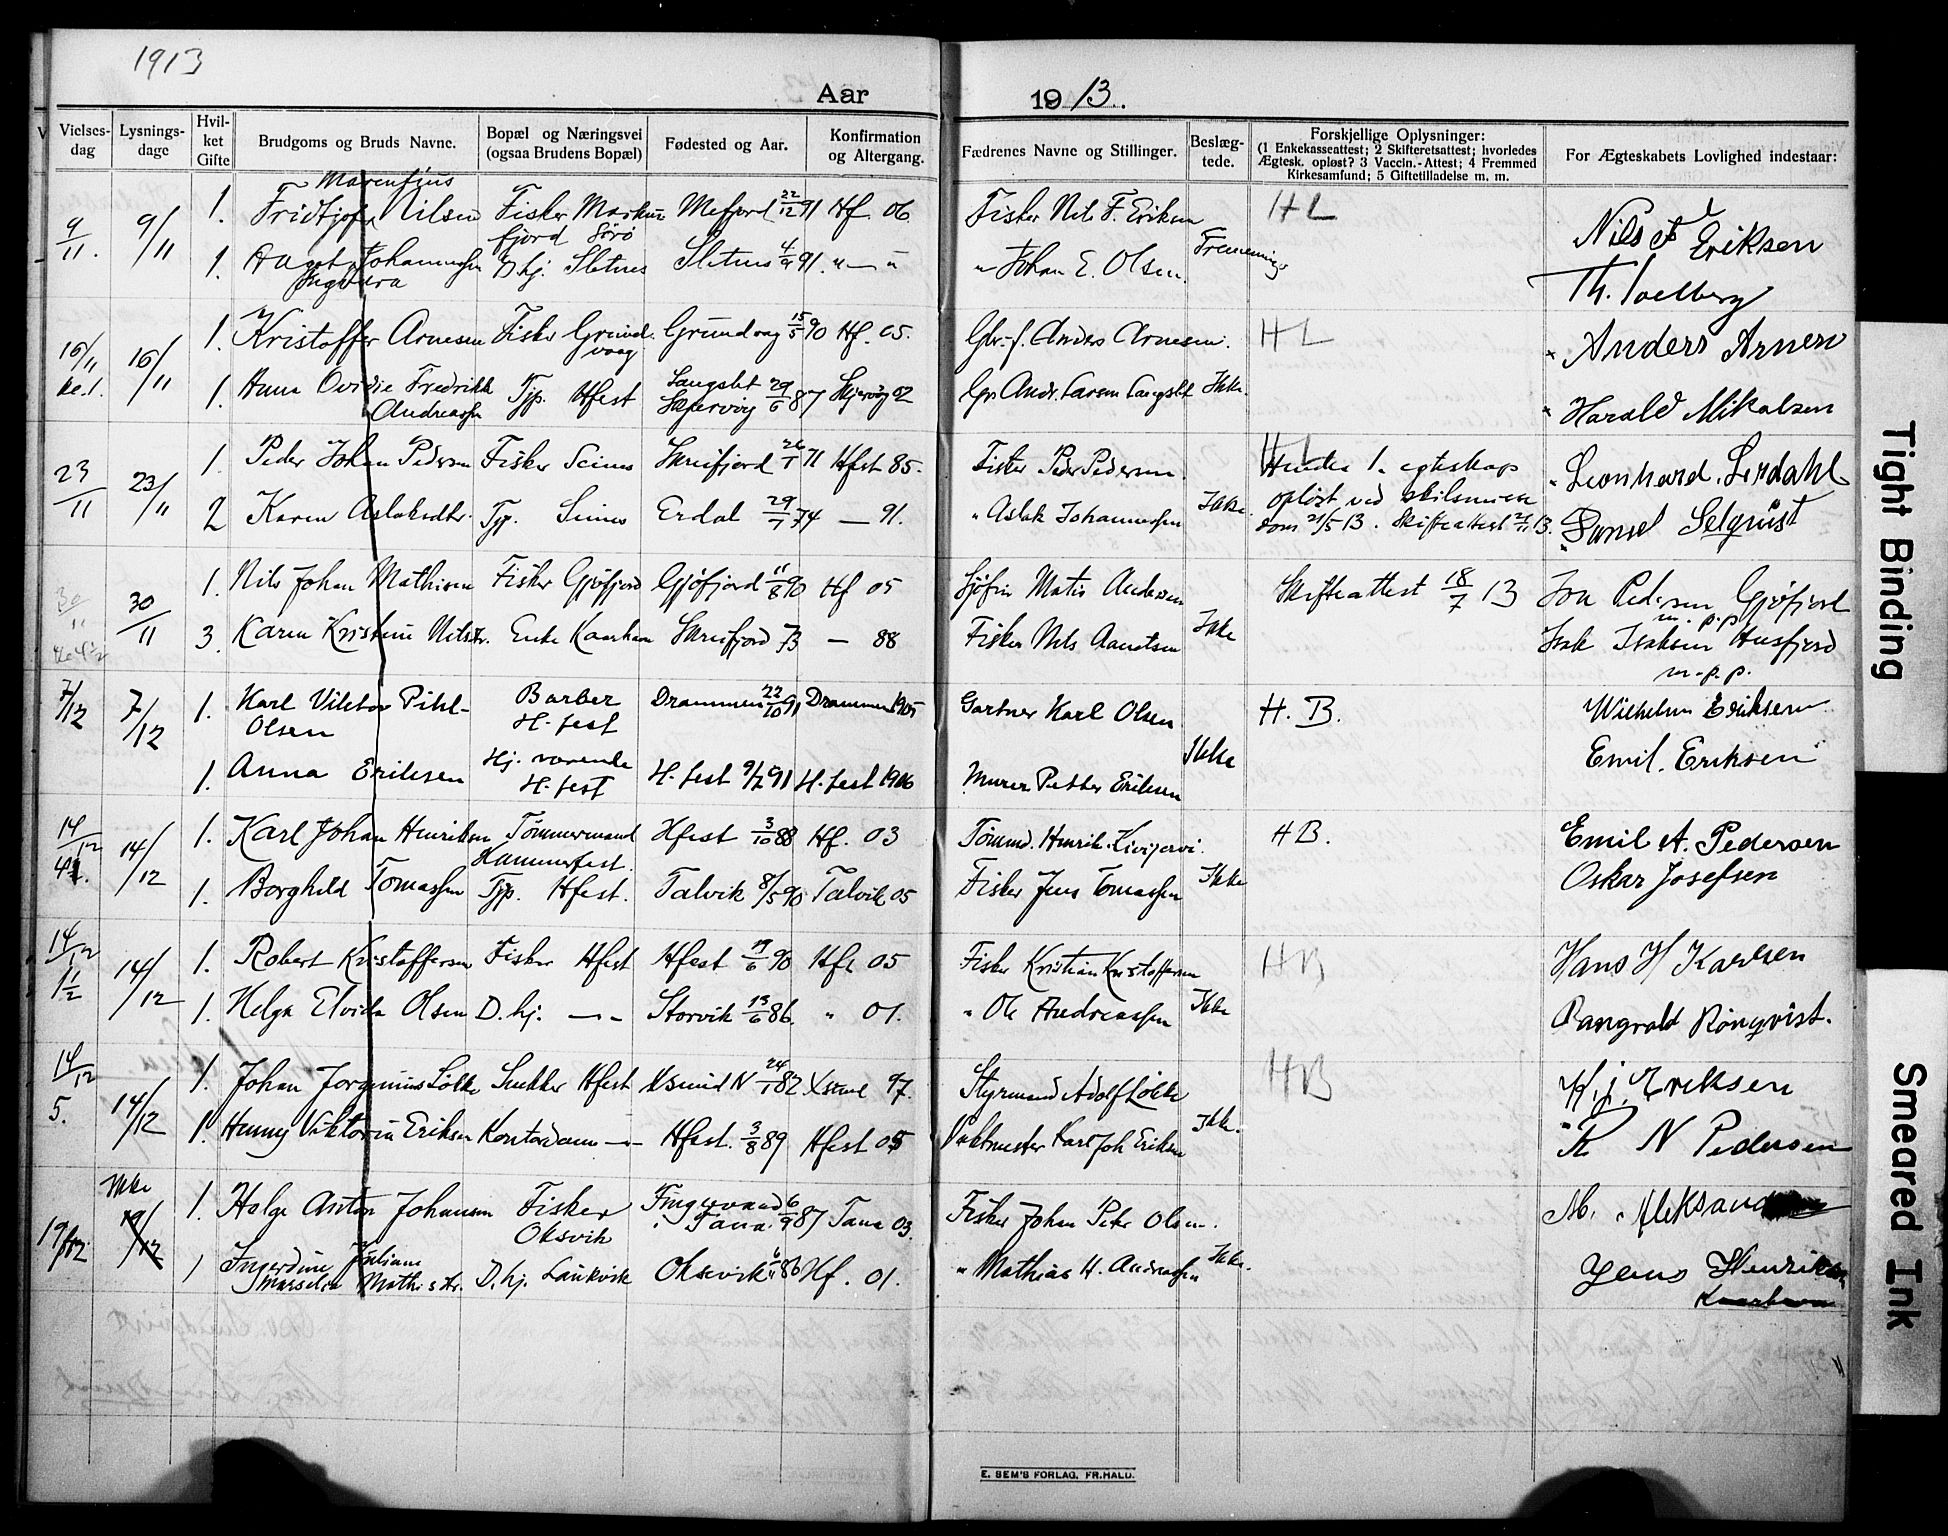 1913
Aar
19 13.
Vielses-dag
Lysnings-dage
Hvil-ket Gifte
Brudgoms og Bruds Navne.
Bopæl og Næringsvei (ogsaa Brudens Bopæl)
Fødested og Aar.
Konfirmation og Altergang.
Fædrenes Navne og Stillinger.
Beslæg-tede.
Forskjellige Oplysninger: (1 Enkekasseattest; 2 Skifteretsattest; hvorledes Ægtesk. opløst? 3 Vaccin.-Attest; 4 Fremmed Kirkesamfund; 5 Giftetilladelse m. m.
For Ægteskabets Lovlighed indestaar:
9/11. 9/11 1. Fridtjof Marenfius Nilsen Fisker Markus fjord Sørø Mefjord 22/12 91 Hf. 06 Fisker Nils F. Eriksen HL Nils F Eriksen
1. Johannessen Ingvara D.hj. Sletnes Sletnes 4/9 91. " — " " Johan E. Olsen. Th. Soelberg
16/11 16/11 1. Kristoffer Arnesen Fisker Grundvaag Grundvag 15/5 90 Hf. 05. Gbr.f. Anders Arnesen. HL Anders Arnen
1. Hanna Ovidie Fredrikke Andreassen Tjp. Hfest Langslet Skjervøy 29/6 87 Skjervøy 02 Andr. Larsen Langslet Ikke. Harald Mikalsen
23/11 23/11 1. Peder Johan Pedersen Fisker Seines Skreifjord 26/1 71 Hfest 85. Fisker Peder Pedersen HL Hendes 1. egteskap Leonhard. Lerdahl
2 Karen Aslaksdtr. Tjp. Seines Erdal 29/7 74 — 91. " Aslak Johannessen Ikke. opløst ved skilsmisse dom 21/5 13. Skifteattest 13.
30/11 30/11 1. Nils Johan Mathisen Fisker Gjøfjord Gjøfjord 11/8 90 Hf 05 Matis Andersen Skifteattest 18/7 13 Pedersen Gjøfjord m.p.p.
3. Karen Kristine Nilsdtr. Enke Kaarhavn Skreifjord 73 — 88 Fisker Nils Aanetsen Ikke Isak Isaksen Husfjord m.p.p.
7/12 7/12 1. Karl Viktor Pihl-Olsen Barber H-fest Drammen 22/10 91 Drammen 1905 Gartner Karl Olsen H.B. Wilhelm Eriksen
1. Anna Eriksen Hj. værende H-fest H-fest 9/2 91 H-fest 1906 Murer Petter Eriksen Ikke Emil. Eriksen
14/12 14/12 1. Karl Johan Henriksen Tømmermand Hammerfest. Hfest 3/10 88 Hf. 03 Tømmd. Henrik Kivijervi. HB. Emil A. Pedersen
1. Borghild Tomassen Tjp. Hfest. Talvik 8/5 90 Talvik 05 Fisker Jens Tomassen Ikke Oskar Josefsen
14/12 1 1/2 14/12 1. Robert Kristoffersen Fisker Hfest Hfest 19/6 90 Hft 05 Fisker Kristian Kristoffersen HB Hans H Karlsen
1. Helga Elvida Olsen D.hj. — " — Storvik 13/6 86. " 01. " Ole Andreassen Ikke Rangvald Rönqvist.
14/12 5. 14/12 1. Johan Jorginius Løkke Snekker Hfest Ksund N 24/1 82 Xsund 97. Styrmand Adolf Løkke HB H.j. Eriksen
1. Henny Viktoria Eriksen Kontordame — " — Hfest. 3/8 89 Hfest 05 Vaktmester Karl Joh Eriksen Ikke. K N Pedersen
19/12 Ikke 19/12 1. Helge Anton Johansen Fisker Oksvik Fingervand Tana 6/9 87 Tana 03. Fisker Johan Peter Olsen. M. Aleksand
1 Ingerdine Juliane Marselia Mathisdtr. D.hj. Laukvik Oksevik 86 Hf. 01. " Mathias H. Andreassen Ikke. Jens Henriksen
E. SEM'S FORLAG, FR.HALD.
Tight Binding
Smeared Ink